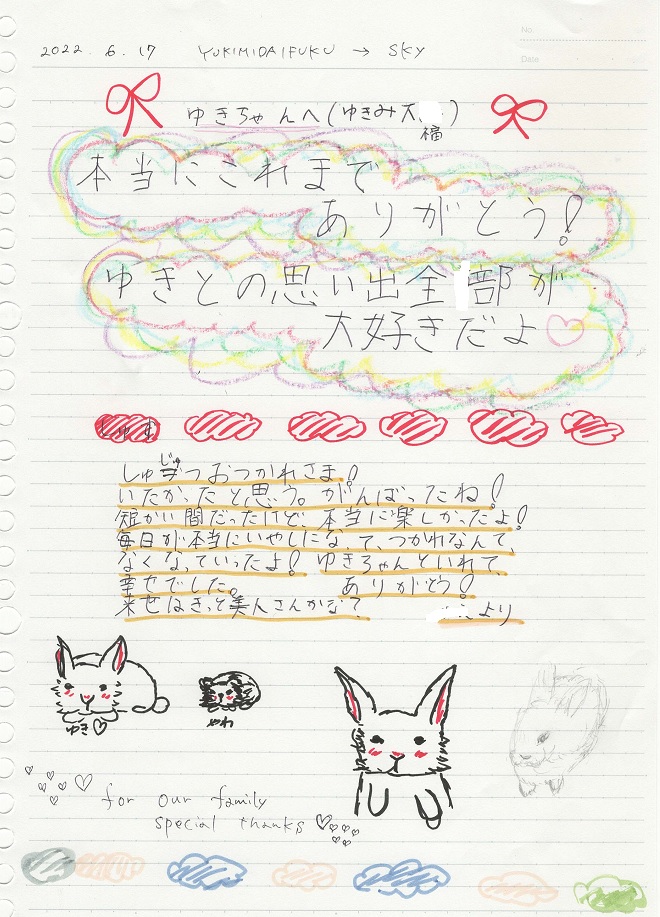 No.
Date
2022.6.17 YUKIMIDAIFUKU → SKY
ゆきちゃんへ(ゆきみ大福)
本当にこれまで
ありがとう!
ゆきとの思い出全部が
大好きだよ♡
しゅじゅつおつかれさま!
いたかったと思う。がんばったね!
短かい間だったけど、本当に楽しかったよ!
毎日が本当にいやしになって、つかれなんて、
なくなっていったよ! ゆきちゃんといれて、
幸せでした。 ありがとう!
来世はきっと美人さんかな? より
ゆき♡
やわ
for our family
special thanks